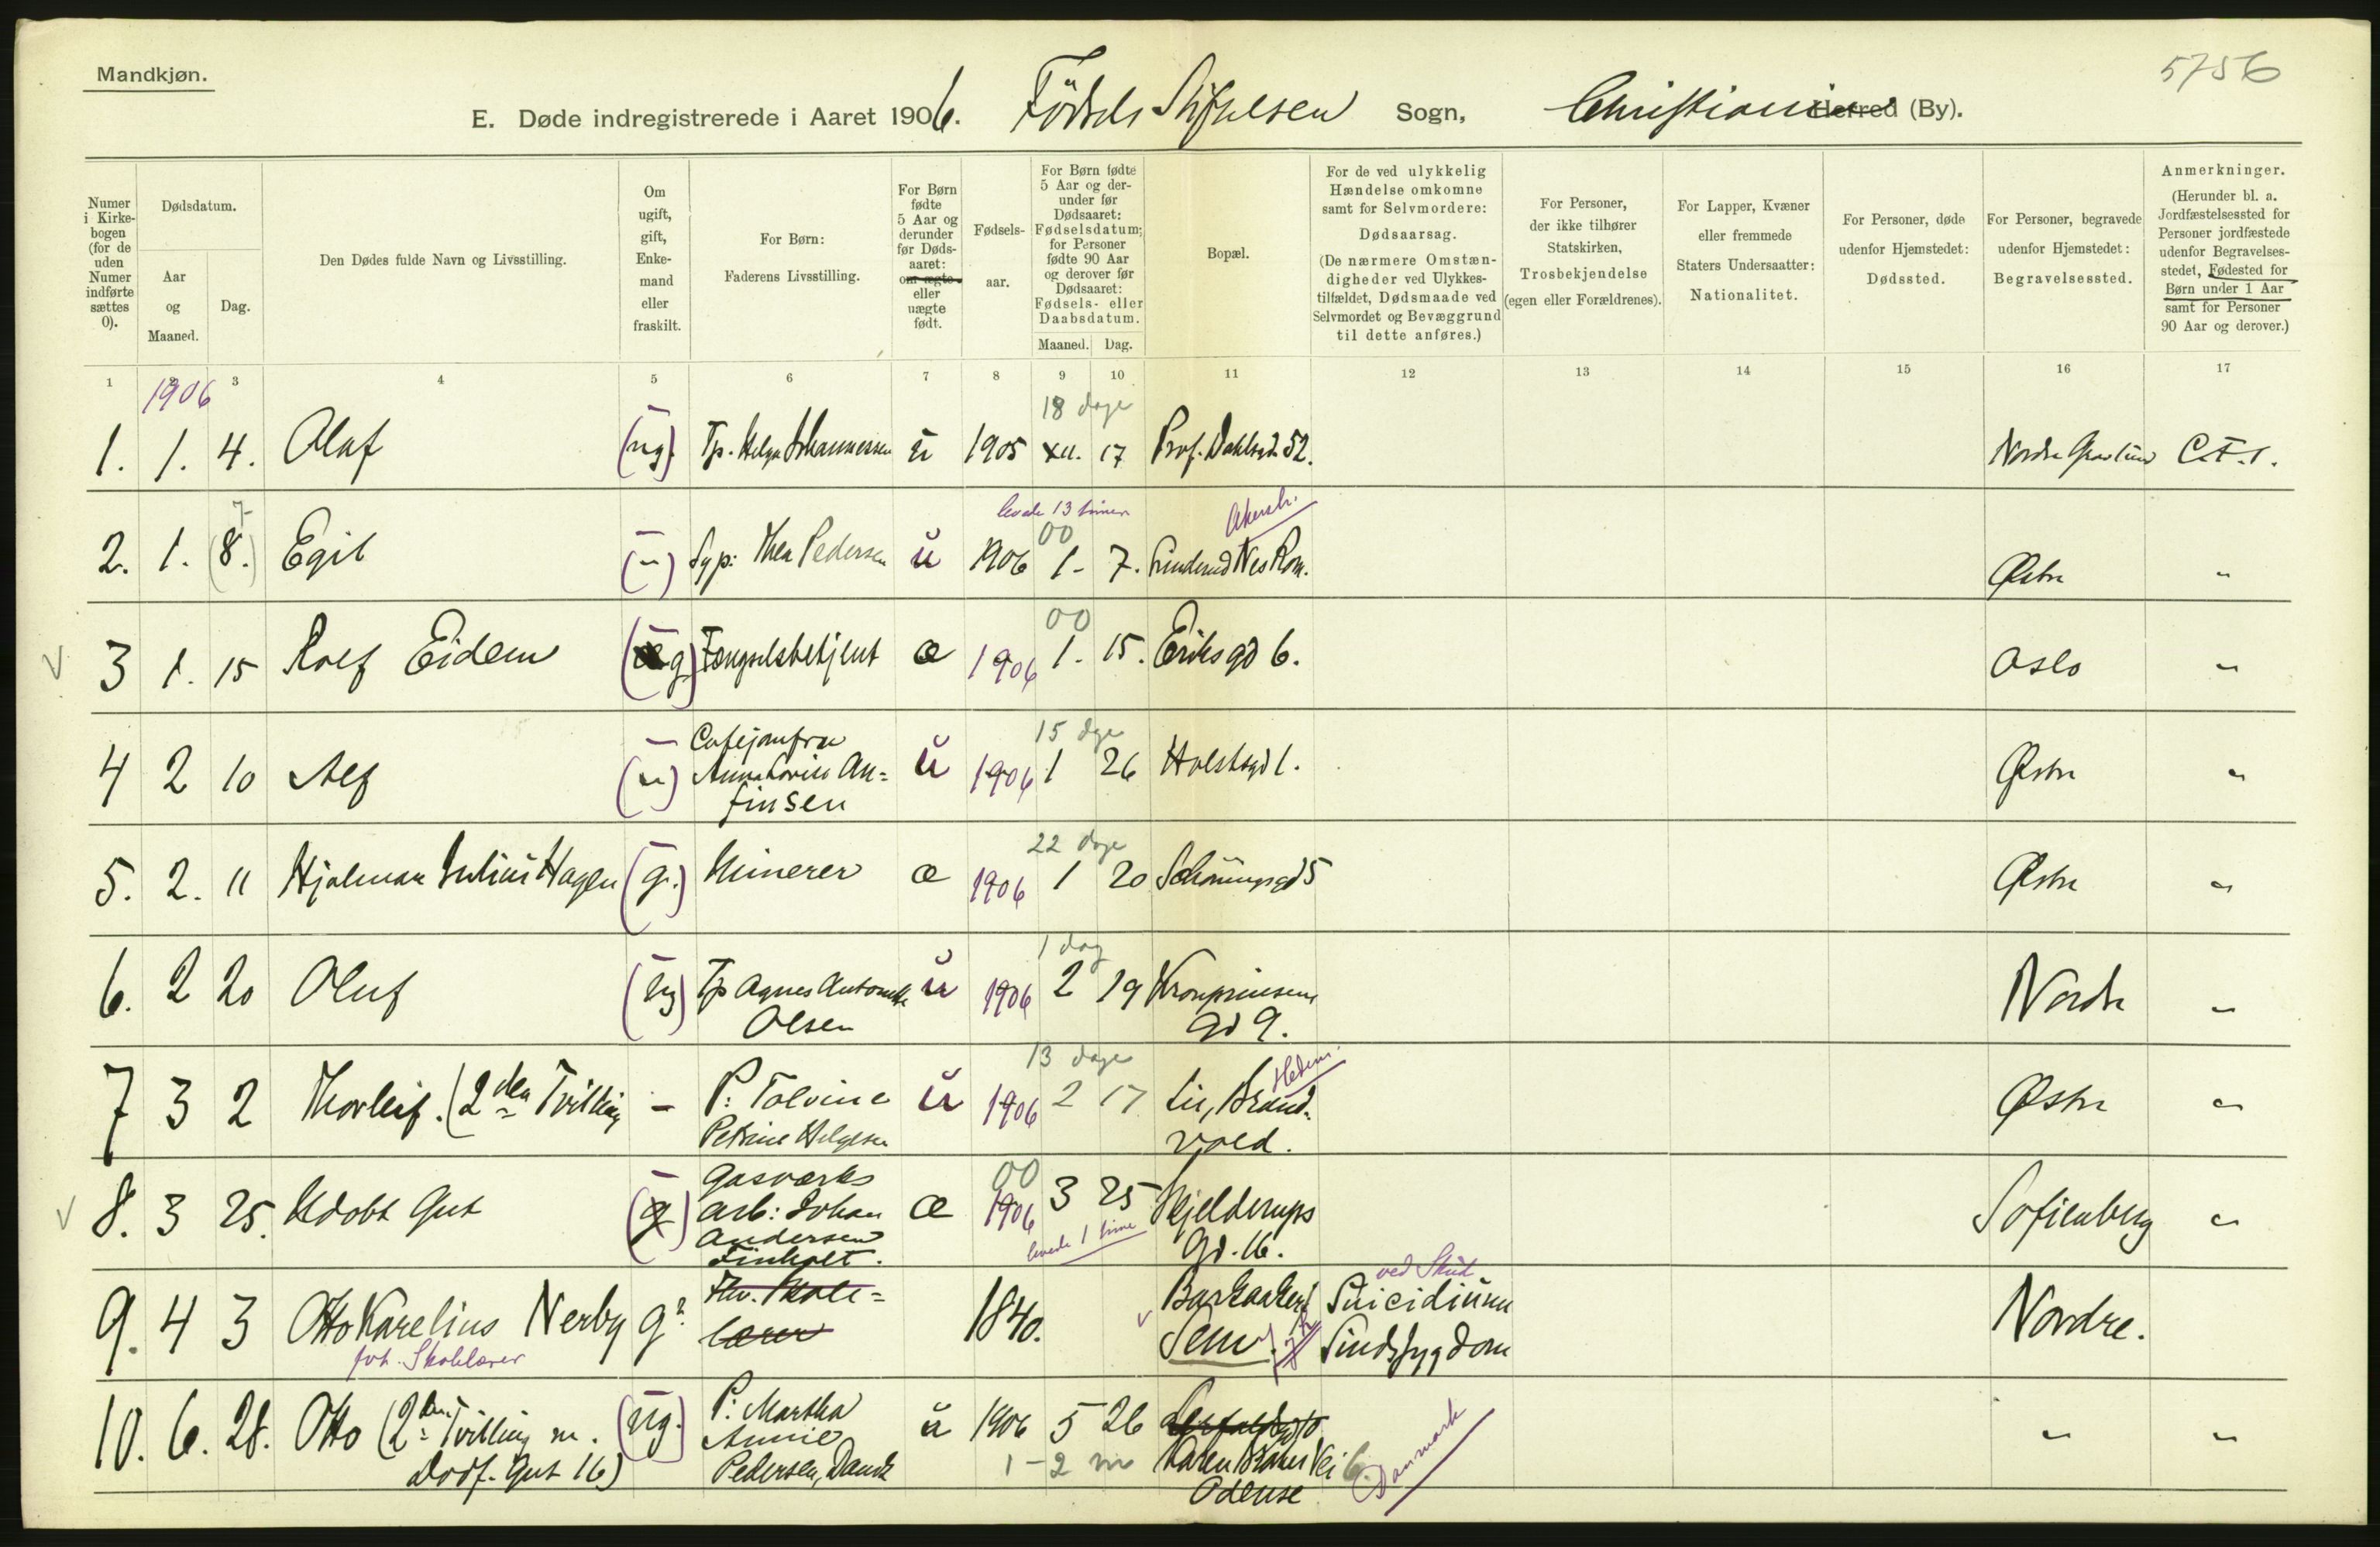 Mandkjøn.
5756
E. Døde indregistrerede i Aaret 1906. Födsels Stiftelsen Sogn, Christiania Herred (By).
Numer i Kirkebogen (for de uden Numer indførte sættes 0).
Dødsdatum.
Aar og Maaned.
Dag.
Den Dødes fulde Navn og Livsstilling.
Om ugift, gift, Enkemand eller fraskilt.
For Børn: Faderens Livsstilling.
For Børn fødte 5 Aar og derunder før Dødsaaret: om ægte eller uægte født.
Fødselsaar.
For Børn fødte 5 Aar og derunder før Dødsaaret: Fødselsdatum; for Personer fødte 90 Aar og derover før Dødsaaret: Fødsels- eller Daabsdatum.
Maaned. Dag.
Bopæl.
For de ved ulykkelig Hændelse omkomne samt for Selvmordere: Dødsaarsag. (De nærmere Omstændigheder ved Ulykkestilfældet, Dødsmaade ved Selvmordet og Bevæggrund til dette anføres.)
For Personer, der ikke tilhører Statskirken, Trosbekjendelse (egen eller Forældrenes).
For Lapper, Kvæner eller fremmede Staters Undersaatter: Nationalitet.
For Personer, døde udenfor Hjemstedet: Dødssted.
For Personer, begravede udenfor Hjemstedet: Begravelsessted.
Anmerkninger. (Herunder bl. a. Jordfæstelsessted for Personer jordfæstede udenfor Begravelsesstedet, Fødested for Børn under 1 Aar samt for Personer 90 Aar og derover.)
1 2 3 4 5 6 7 8 9 10 11 12 13 14 15 16 17
1906
18 dage
1. 1. 4. Olaf (ug) Tp. Helga Johannessen u 1905 XII. 17 Prof. Dahlsgd. 52. Nordre Gravlund C.F.S.
7 levede 13 timer 00 Akersh.
2. 1. (8.) Egil (") Syp: Thea Pedersen u 1906 1- 7. Nes Rom. Østre "
00
3 1. 15 Rolf Eidem (g) Fængselsbetjent æ 1906 1. 15. Eriksgd 6. Oslo "
15 dge
4 2 10 Alf (") Cafejomfru u 1906 1 26 Holstsgd 1. Østre "
Anna Lovise An=
finsen
22 dage
5. 2. 11 Hjalmar Julius Hagen (g.) Minerer æ 1906 1 20 Schöningsgd 5 Østre "
1 dag
6. 2 20 Oluf (ug) Tp Agnes Antonette u 1906 2 19 Kronprinsens Nordre "
Olsen gd 9.
13 dage Hedm.
7 3 2 Thorleif. (2den Tvilling - P: Tolvine u 1906 2 17 Lir, Brand- Østre "
Petrine Helgesen vold.
00
8. 3 25. Udøbt Gut (g) Gasværks æ 1906 3 25 Hjelderups Sofienberg "
arb: Johan gd. 16.
Andersen levede 1 time
Finholt.
ved Skud
9. 4 3 Otto Karelius Nerby g. Fhv. Skole= 1840. Barkaaker Suicidium Nordre.
fvh. Skolelærer lærer Sem Sindssygdom
10. 6. 28. Otto (2den Tvilling m. (ug.) P: Martha u 1906 5 26 " "
Dødf. Gut 16) Annie 1-2 m Karen Brahes Vei 6. Danmark
Pedersen, Dansk Odense